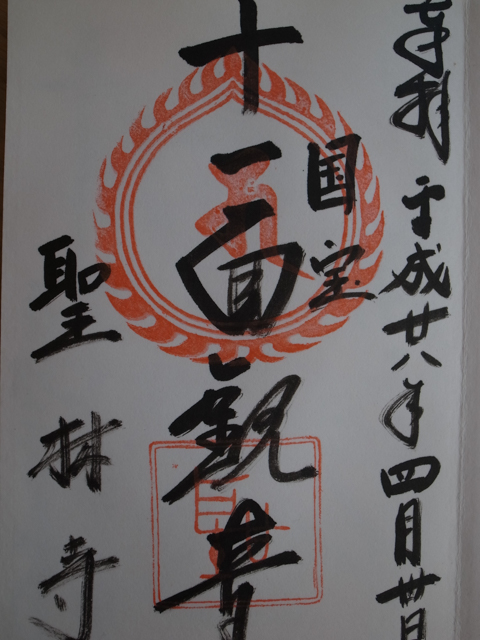 奉拝 平成廿八年四月卅日
国宝
十一面観音
聖林寺